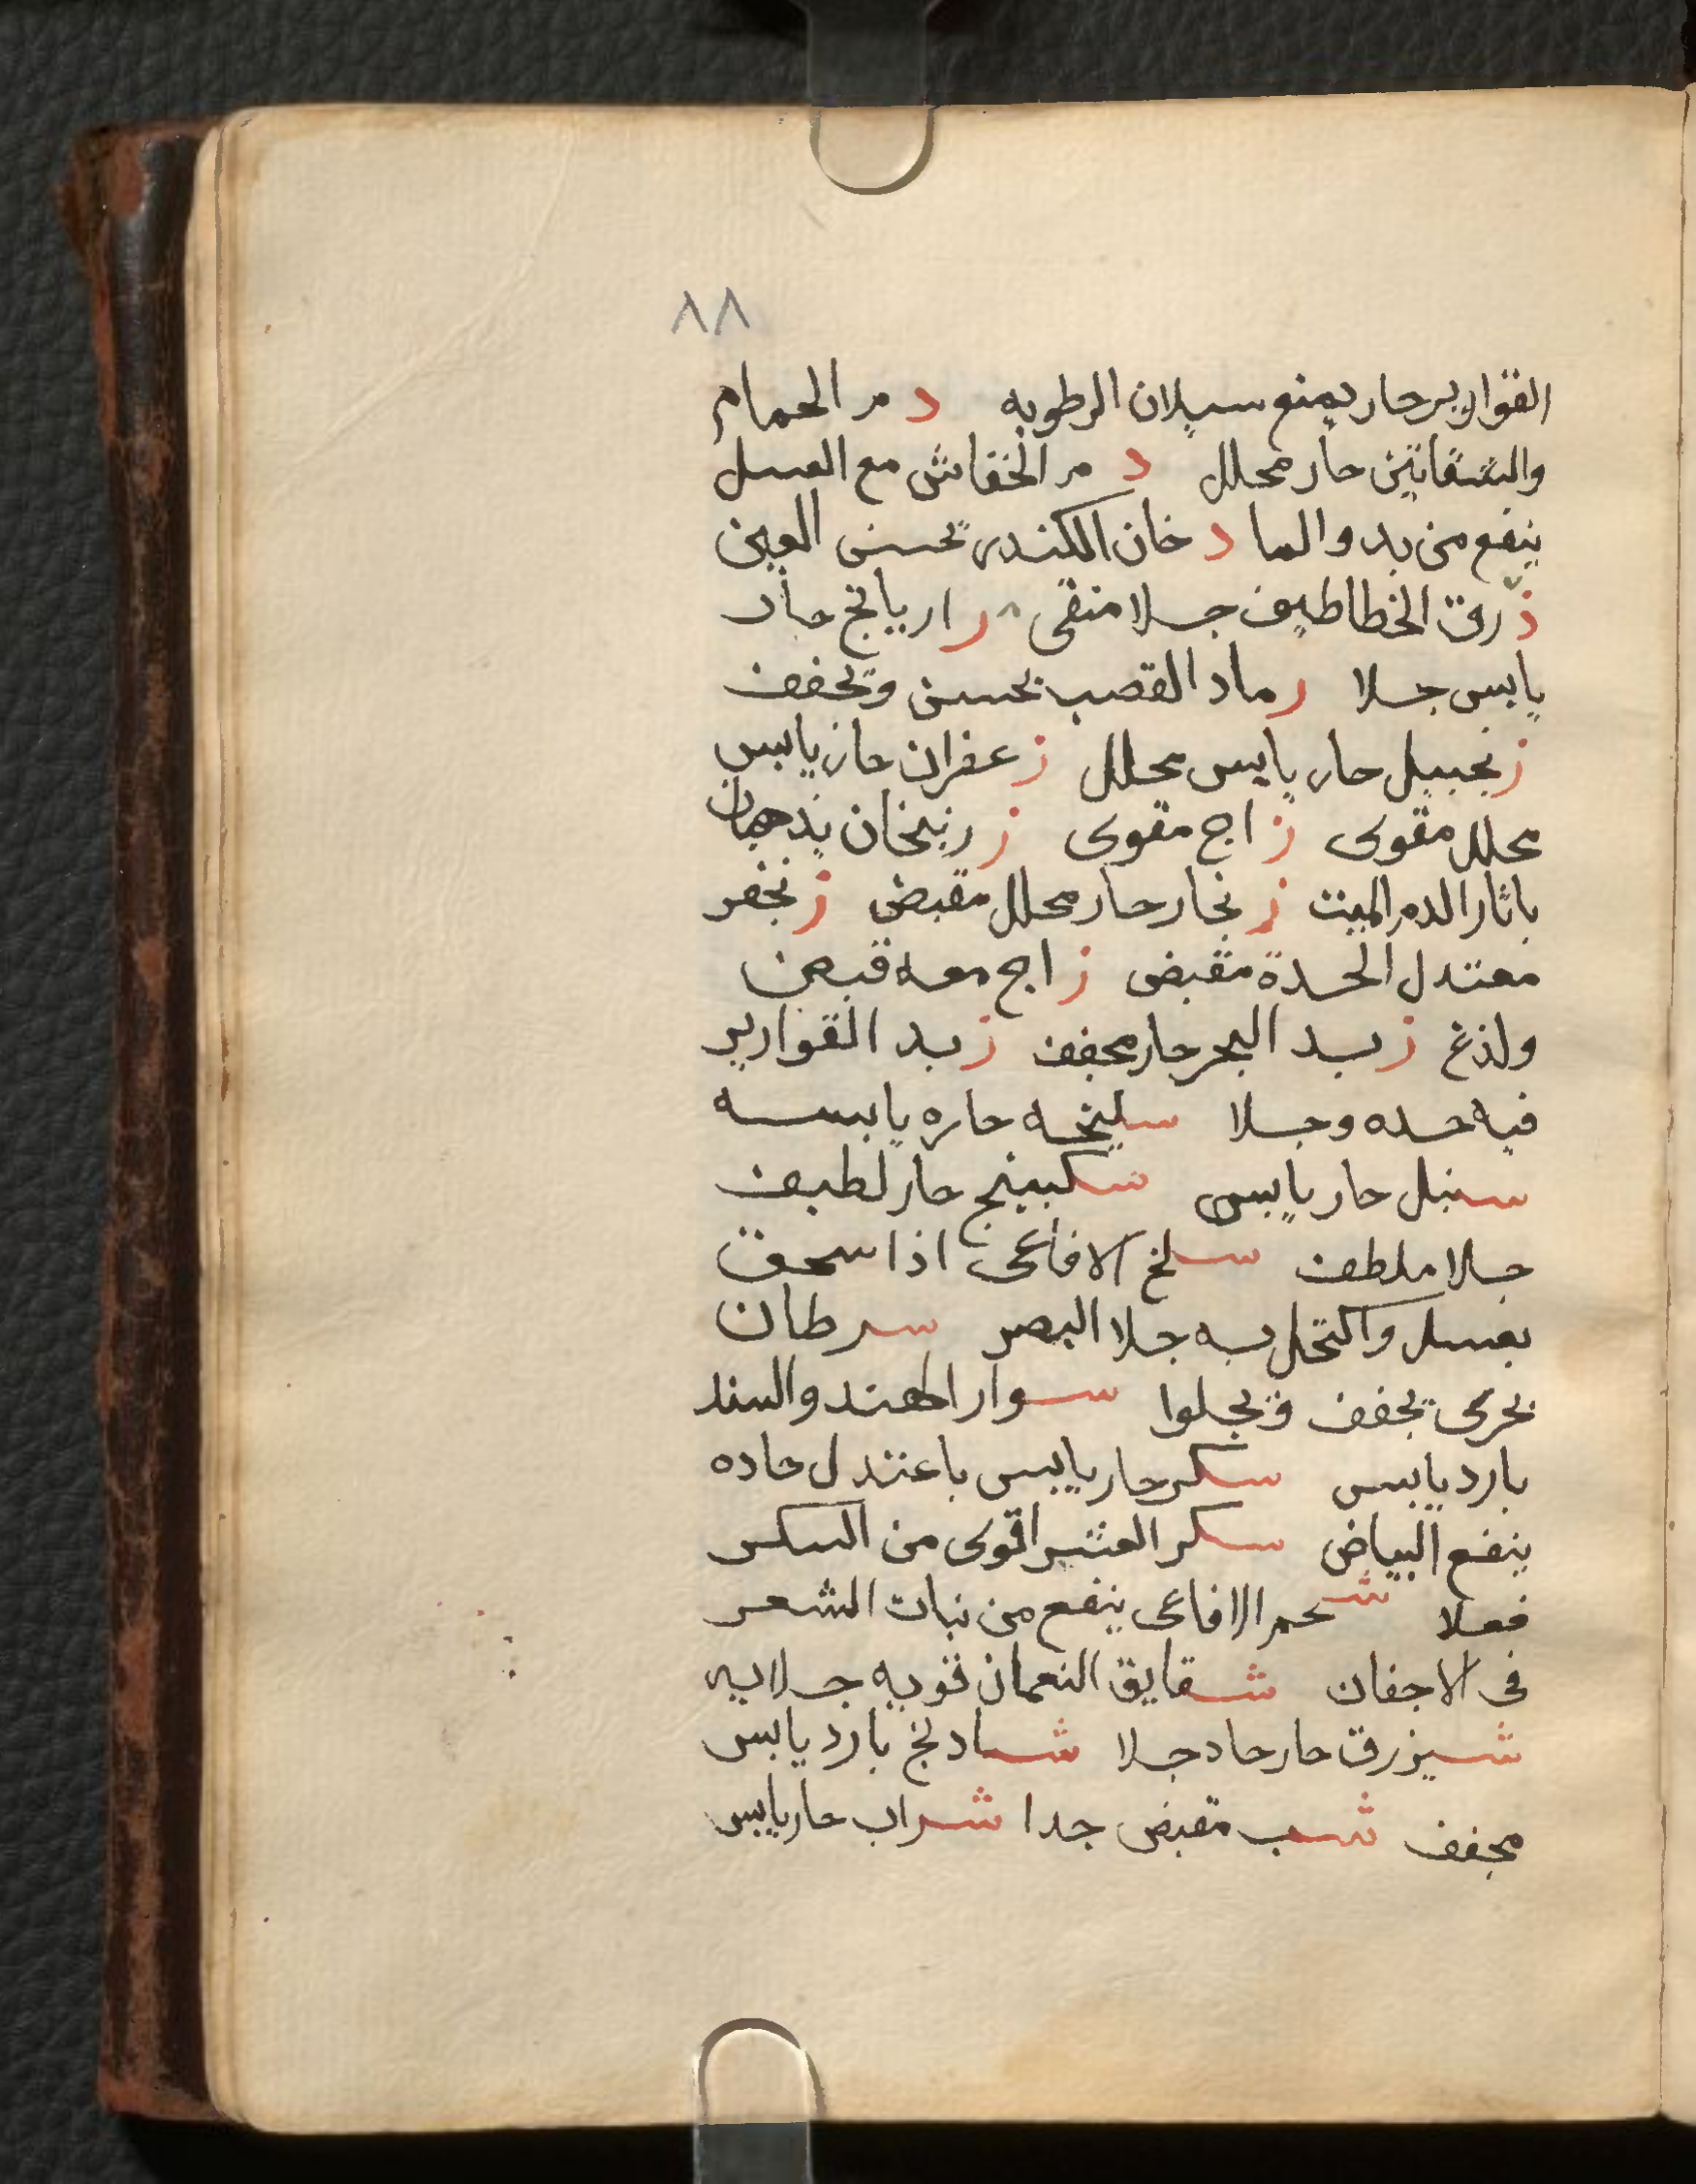 ٨٨
القوارير حار يمنع سيلان الرطوبه دم الحمام
والشفانين حار محلل دم الخفاش مع العسل
ينفع من بدو الما دخان الكندر يحسن العين
ذرق الخطاطيف جلا منقى رازيانج حار
يابس جلا رماد القصب يحسن ويجفف
زنجبيل حار يابس محلل زعفران حار يابس
محلل مقوى زاج مقوى زرنيخان يذهبان
باثار الدم الميت زنجار حار محلل مقبض زنجفر
معتدل الحدة مقبض زاج معه قبض
ولذغ زبد البحر حار مجفف زبد القوارير
فيه حده وجلا سليخه حاره يابسه
سنبل حار يابس سكبينج حار لطيف
جلا ملطف سلخ الافاعى اذا سحق
بعسل واكتحل به جلا البصر سرطان
بحرى يجفف ويجلوا سوار الهند والسند
بارد يابس سكر حار يابس باعتدل حاده
ينفع البياض سكر العشر اقوى من السكر
فعلا شحم الافاعى ينفع من نبات الشعر
فى الاجفان شقايق النعمان قويه جلايه
شيزرق حار حاد جلا شادنج بارد يابس
مجفف شب مقبض جدا شراب حار يابس